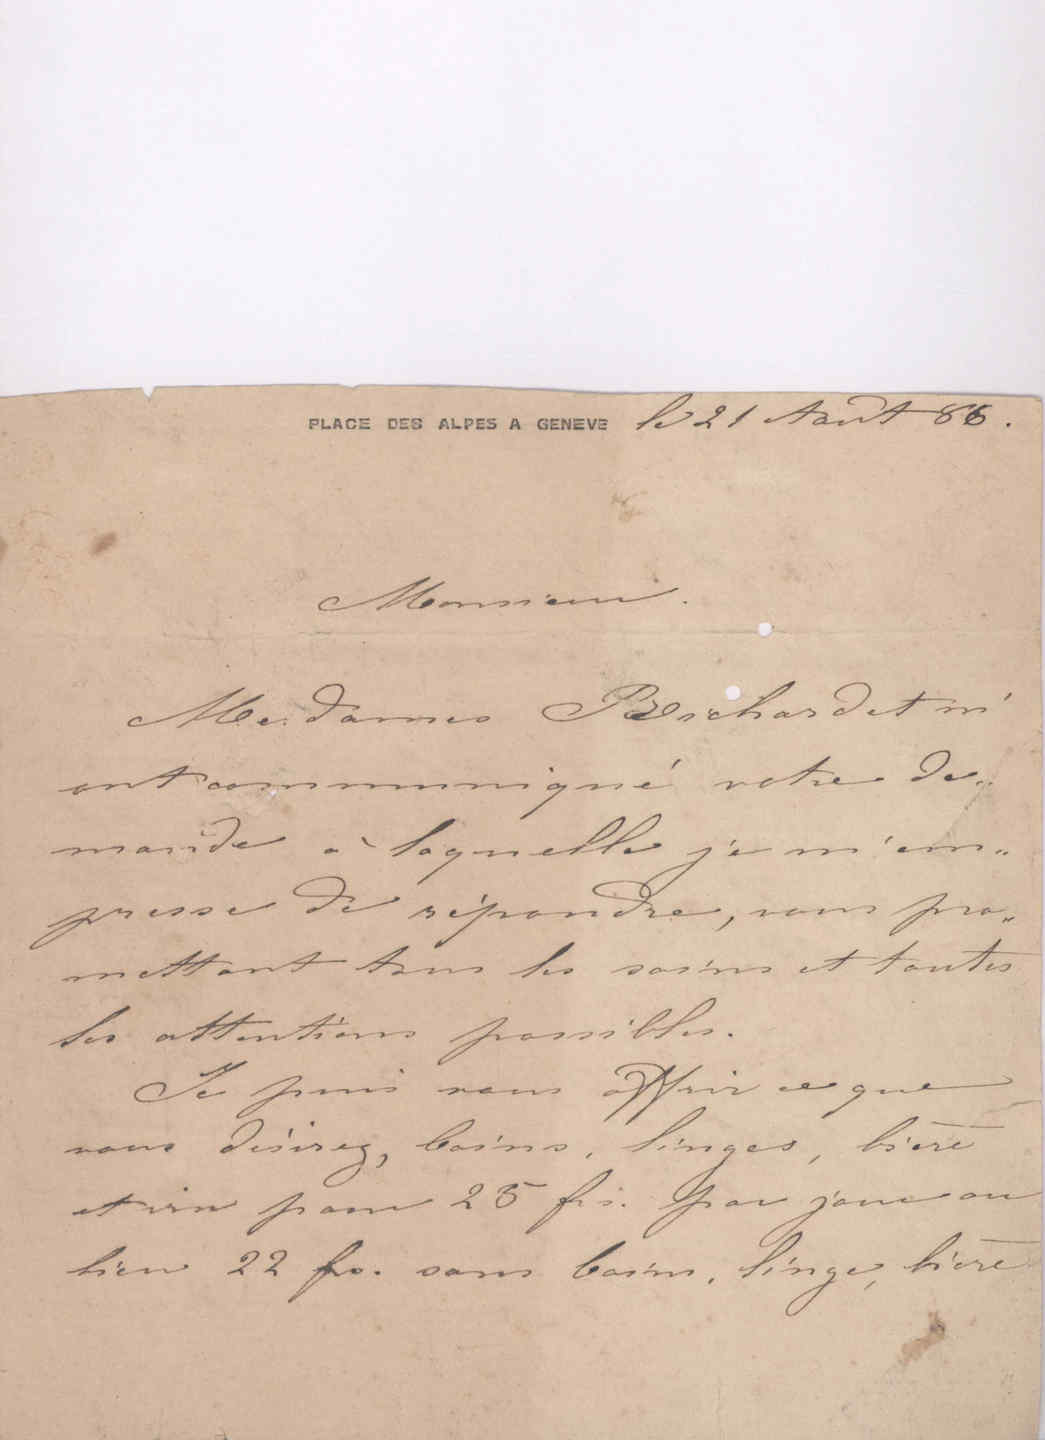 PLACE DES ALPES A GENEVE le 21 Août 86.
Monsieur.
Mesdames m'
ont communiqué votre de„
mande à laquelle je m'em„
presse de répondre, vous pro„
mettant tous les soins et toutes
les attentions possibles.
Je puis vous offrir ce que
vous désirez, bains, linges, bière
et vin pour 25 frs. par jour ou
bien 22 frs. sans bains, linge, bière